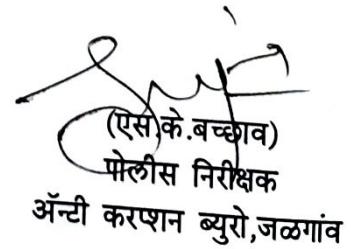 (एस.के.बच्छाव)
पोलीस निरीक्षक
ॲन्टी करप्शन ब्युरो,जळगांव